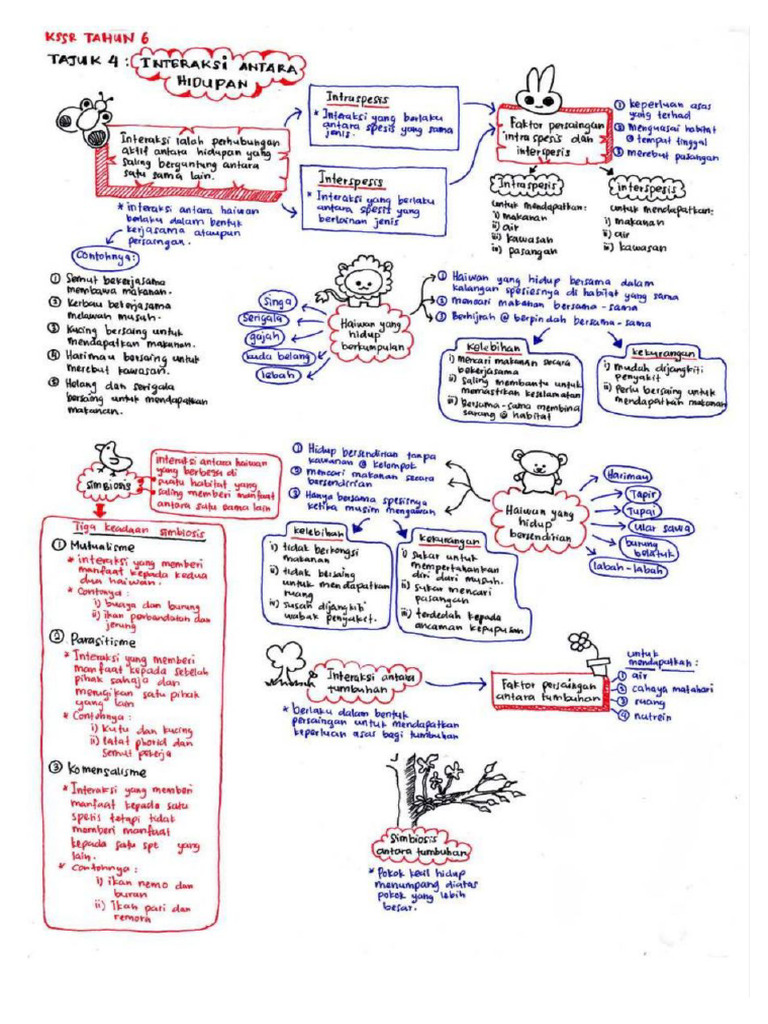 KSSR TAHUN 6
TAJUK 4 : INTERAKSI ANTARA
HIDUPAN
Interaksi ialah perhubungan
aktif antara hidupan yang
saling bergantung antara
satu sama lain.
Intraspesis
* Interaksi yang berlaku
antara spesis yang sama
jenis.
Interspesis
* Interaksi yang berlaku
antara spesis yang
berlainan jenis
Faktor persaingan
intraspesis dan
interspesis
① keperluan asas
yang terhad
② menguasai habitat
@ tempat tinggal
③ merebut pasangan
Intraspesis
untuk mendapatkan:
i) makanan
ii) air
iii) kawasan
iv) pasangan
interspesis
untuk mendapatkan:
i) makanan
ii) air
iii) kawasan
* interaksi antara haiwan
berlaku dalam bentuk
kerjasama ataupun
persaingan.
Contohnya:
① Semut bekerjasama
membawa makanan.
② Kerbau bekerjasama
melawan musuh.
③ Kucing bersaing untuk
mendapatkan makanan.
④ Harimau bersaing untuk
merebut kawasan.
⑤ Helang dan serigala
bersaing untuk mendapatkan
makanan.
Haiwan yang
hidup
berkumpulan
Singa
Serigala
gajah
kuda belang
lebah
① Haiwan yang hidup bersama dalam
kalangan spesiesnya di habitat yang sama
② mencari makanan bersama-sama
③ Berhijrah @ berpindah bersama-sama
kelebihan
i) mencari makanan secara
bekerjasama
ii) saling membantu untuk
memastikan keselamatan
iii) Bersama-sama membina
sarang @ habitat
kekurangan
i) mudah dijangkiti
penyakit
ii) Perlu bersaing untuk
mendapatkan makanan
simbiosis
interaksi antara haiwan
yang berbeza di
suatu habitat yang
saling memberi manfaat
antara satu sama lain
Tiga keadaan simbiosis
① Mutualisme
* interaksi yang memberi
manfaat kepada kedua
dua haiwan.
* Contohnya :
i) buaya dan burung
ii) ikan perbandatan dan
jerung
② Parasitisme
* Interaksi yang memberi
manfaat kepada sebelah
pihak sahaja dan
merugikan satu pihak
yang lain
* Contohnya :
i) kutu dan kucing
ii) lalat phorid dan
semut pekerja
③ Komensalisme
* Interaksi yang memberi
manfaat kepada satu
spesis tetapi tidak
memberi manfaat
kepada satu spe yang
lain.
* Contohnya :
i) ikan nemo dan
buran
ii) Ikan pari dan
remora
① Hidup bersendirian tanpa
kawanan @ kelompok
② mencari makanan secara
bersendirian
③ Hanya bersama spesisnya
ketika musim mengawan
Haiwan yang
hidup
bersendirian
Harimau
Tapir
Tupai
Ular sawa
burung
belatuk
labah-labah
kelebihan
i) tidak berkongsi
makanan
ii) tidak bersaing
untuk mendapatkan
ruang
iii) susah dijangkiti
wabak penyakit.
kekurangan
i) sukar untuk
mempertahankan
diri dari musuh.
ii) sukar mencari
pasangan
iii) terdedah kepada
ancaman kepupusan
Interaksi antara
tumbuhan
* Berlaku dalam bentuk
persaingan untuk mendapatkan
keperluan asas bagi tumbuhan
Faktor persaingan
antara tumbuhan
untuk
mendapatkan :
① air
② cahaya matahari
③ ruang
④ nutrein
Simbiosis
antara tumbuhan
* Pokok kecil hidup
menumpang diatas
pokok yang lebih
besar.